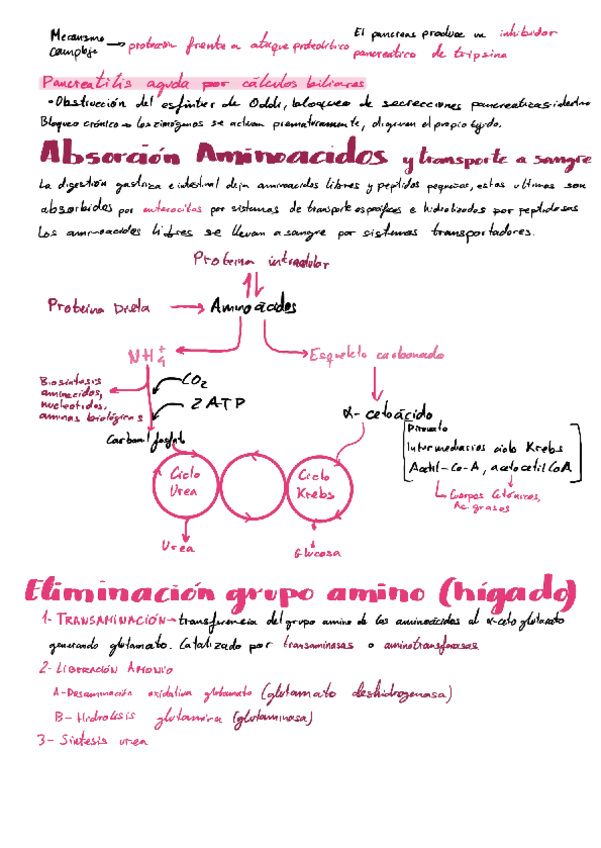 Mecanismo complejo → protección frente a ataque proteolítico
El pancreas produce un inhibidor pancreatico de tripsina
Pancreatitis aguda por cálculos biliares
• Obstrucción del esfínter de Oddi, bloqueo de secreciones pancreaticas-intestino
Bloqueo crónico → los zimógenos se activan prematuramente, digieren el propio tejido.
Absorción Aminoacidos y transporte a sangre
La digestión gastrica e intestinal deja aminoacidos libres y peptidos pequeños, estos ultimos son
absorbidos por enterocitos por sistemas de transporte especificos e hidrolizados por peptidasas
Los aminoacidos libres se llevan a sangre por sistemas transportadores.
Proteina intracelular
Proteina Dieta → Aminoácidos
NH4+
Esqueleto carbonado
Biosintesis
aminoacidos,
nucleotidos,
aminas biológicas
CO2
2 ATP
Carbamil fosfato
α-cetoácido
Piruvato
Intermediarios ciclo Krebs
Acetil-Co-A, acetoacetil CoA
Cuerpos Cetónicos,
Ac grasos
Ciclo
Urea
Ciclo
Krebs
Urea
Glucosa
Eliminación grupo amino (hígado)
1- TRANSAMINACIÓN → transferencia del grupo amino de los aminoácidos al α-ceto glutarato
generando glutamato. Catalizado por transaminasas o aminotransferasas
2- LIBERACIÓN AMONIO
A- Desaminación oxidativa glutamato (glutamato deshidrogenasa)
B- Hidrolisis glutamina (glutaminasa)
3- Sintesis urea